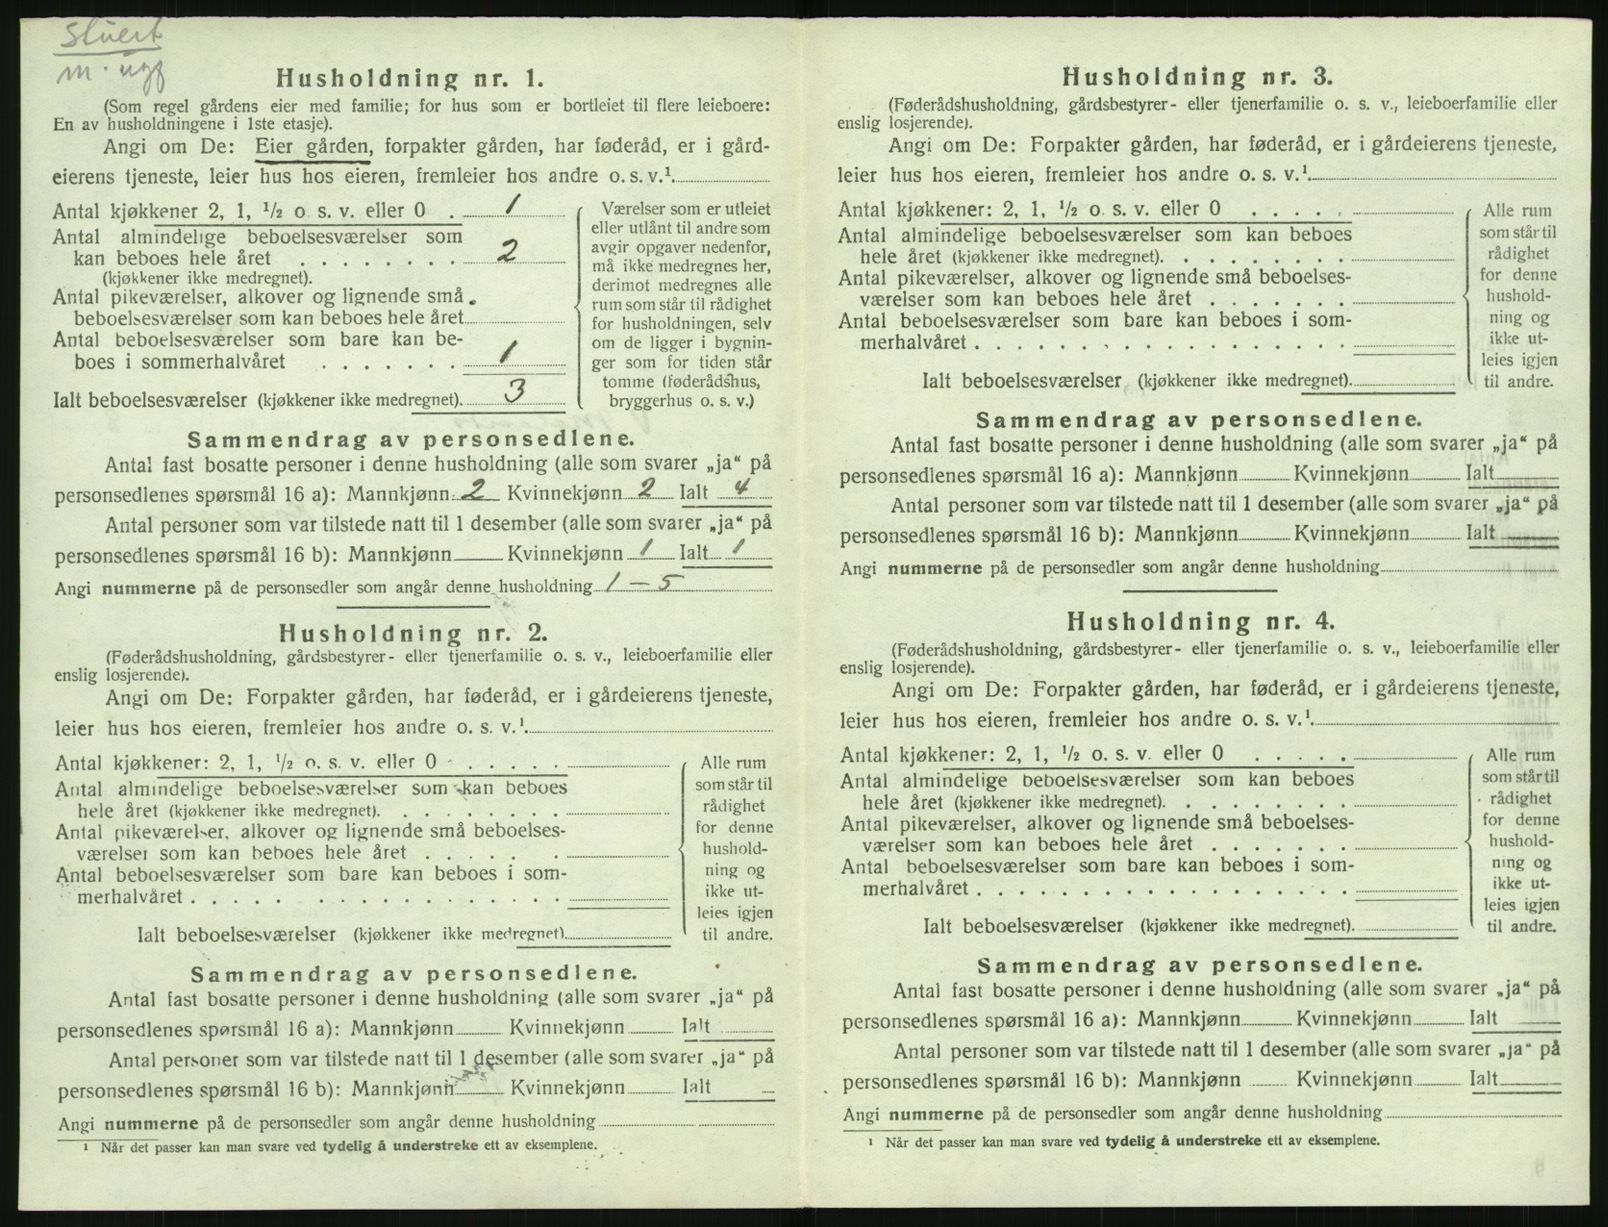 Stuert
m. ugf
Husholdning nr. 1.
(Som regel gårdens eier med familie; for hus som er bortleiet til flere leieboere:
En av husholdningene i 1ste etasje).
Angi om De: Eier gården, forpakter gården, har føderåd, er i gård-
eierens tjeneste, leier hus hos eieren, fremleier hos andre o. s. v.¹
Antal kjøkkener 2, 1, ½ o s. v. eller 0 . 1
Antal almindelige beboelsesværelser som
kan beboes hele året . . . . . . . . 2
(kjøkkener ikke medregnet).
Antal pikeværelser, alkover og lignende små
beboelsesværelser som kan beboes hele året
Antal beboelsesværelser som bare kan be-
boes i sommerhalvåret . . . . . . . 1
Ialt beboelsesværelser (kjøkkener ikke medregnet). 3
Værelser som er utleiet
eller utlånt til andre som
avgir opgaver nedenfor,
må ikke medregnes her,
derimot medregnes alle
rum som står til rådighet
for husholdningen, selv
om de ligger i bygnin-
ger som for tiden står
tomme (føderådshus,
bryggerhus o. s. v.)
Sammendrag av personsedlene.
Antal fast bosatte personer i denne husholdning (alle som svarer „ja“ på
personsedlenes spørsmål 16 a): Mannkjønn 2 Kvinnekjønn 2 Ialt 4
Antal personer som var tilstede natt til 1 desember (alle som svarer „ja“ på
personsedlenes spørsmål 16 b): Mannkjønn Kvinnekjønn 1 Ialt 1
Angi nummerne på de personsedler som angår denne husholdning 1 – 5
Husholdning nr. 2.
(Føderådshusholdning, gårdsbestyrer- eller tjenerfamilie o. s. v., leieboerfamilie eller
enslig losjerende).
Angi om De: Forpakter gården, har føderåd, er i gårdeierens tjeneste,
leier hus hos eieren, fremleier hos andre o. s. v.¹
Antal kjøkkener: 2, 1, ½ o. s. v. eller 0 . . . . . .
Antal almindelige beboelsesværelser som kan beboes
hele året (kjøkkener ikke medregnet). . . . . . . . .
Antal pikeværelser, alkover og lignende små beboelses-
værelser som kan beboes hele året . . . . . . .
Antal beboelsesværelser som bare kan beboes i som-
merhalvåret . . . . . . . . . . . . . . . . . .
Ialt beboelsesværelser (kjøkkener ikke medregnet).
Alle rum
som står til
rådighet
for denne
hushold-
ning og
ikke ut-
leies igjen
til andre.
Sammendrag av personsedlene.
Antal fast bosatte personer i denne husholdning (alle som svarer „ja“ på
personsedlenes spørsmål 16 a): Mannkjønn Kvinnekjønn Ialt
Antal personer som var tilstede natt til 1 desember (alle som svarer „ja“ på
personsedlenes spørsmål 16 b): Mannkjønn Kvinnekjønn Ialt
Angi nummerne på de personsedler som angår denne husholdning
¹ Når det passer kan man svare ved tydelig å understreke ett av eksemplene.
Husholdning nr. 3.
(Føderådshusholdning, gårdsbestyrer- eller tjenerfamilie o. s. v., leieboerfamilie eller
enslig losjerende).
Angi om De: Forpakter gården, har føderåd, er i gårdeierens tjeneste,
leier hus hos eieren, fremleier hos andre o. s. v.¹
Antal kjøkkener: 2, 1, ½ o. s. v. eller 0 . . . . . .
Antal almindelige beboelsesværelser som kan beboes
hele året (kjøkkener ikke medregnet). . . . . . . . .
Antal pikeværelser, alkover og lignende små beboelses-
værelser som kan beboes hele året . . . . . . .
Antal beboelsesværelser som bare kan beboes i som-
merhalvåret . . . . . . . . . . . . . . . . . .
Ialt beboelsesværelser (kjøkkener ikke medregnet).
Alle rum
som står til
rådighet
for denne
hushold-
ning og
ikke ut-
leies igjen
til andre.
Sammendrag av personsedlene.
Antal fast bosatte personer i denne husholdning (alle som svarer „ja“ på
personsedlenes spørsmål 16 a): Mannkjønn Kvinnekjønn Ialt
Antal personer som var tilstede natt til 1 desember (alle som svarer „ja“ på
personsedlenes spørsmål 16 b): Mannkjønn Kvinnekjønn Ialt
Angi nummerne på de personsedler som angår denne husholdning
Husholdning nr. 4.
(Føderådshusholdning, gårdsbestyrer- eller tjenerfamilie o. s. v., leieboerfamilie eller
enslig losjerende).
Angi om De: Forpakter gården, har føderåd, er i gårdeierens tjeneste,
leier hus hos eieren, fremleier hos andre o. s. v.¹
Antal kjøkkener: 2, 1, ½ o. s. v. eller 0 . . . . .
Antal almindelige beboelsesværelser som kan beboes
hele året (kjøkkener ikke medregnet). . . . . . . . .
Antal pikeværelser, alkover og lignende små beboelses-
værelser som kan beboes hele året . . . . . . .
Antal beboelsesværelser som bare kan beboes i som-
merhalvåret . . . . . . . . . . . . . . . . . .
Ialt beboelsesværelser (kjøkkener ikke medregnet).
Alle rum
som står til
rådighet
for denne
hushold-
ning og
ikke ut-
leies igjen
til andre.
Sammendrag av personsedlene.
Antal fast bosatte personer i denne husholdning (alle som svarer „ja“ på
personsedlenes spørsmål 16 a): Mannkjønn Kvinnekjønn Ialt
Antal personer som var tilstede natt til 1 desember (alle som svarer „ja“ på
personsedlenes spørsmål 16 b): Mannkjønn Kvinnekjønn Ialt
Angi nummerne på de personsedler som angår denne husholdning
¹ Når det passer kan man svare ved tydelig å understreke ett av eksemplene.